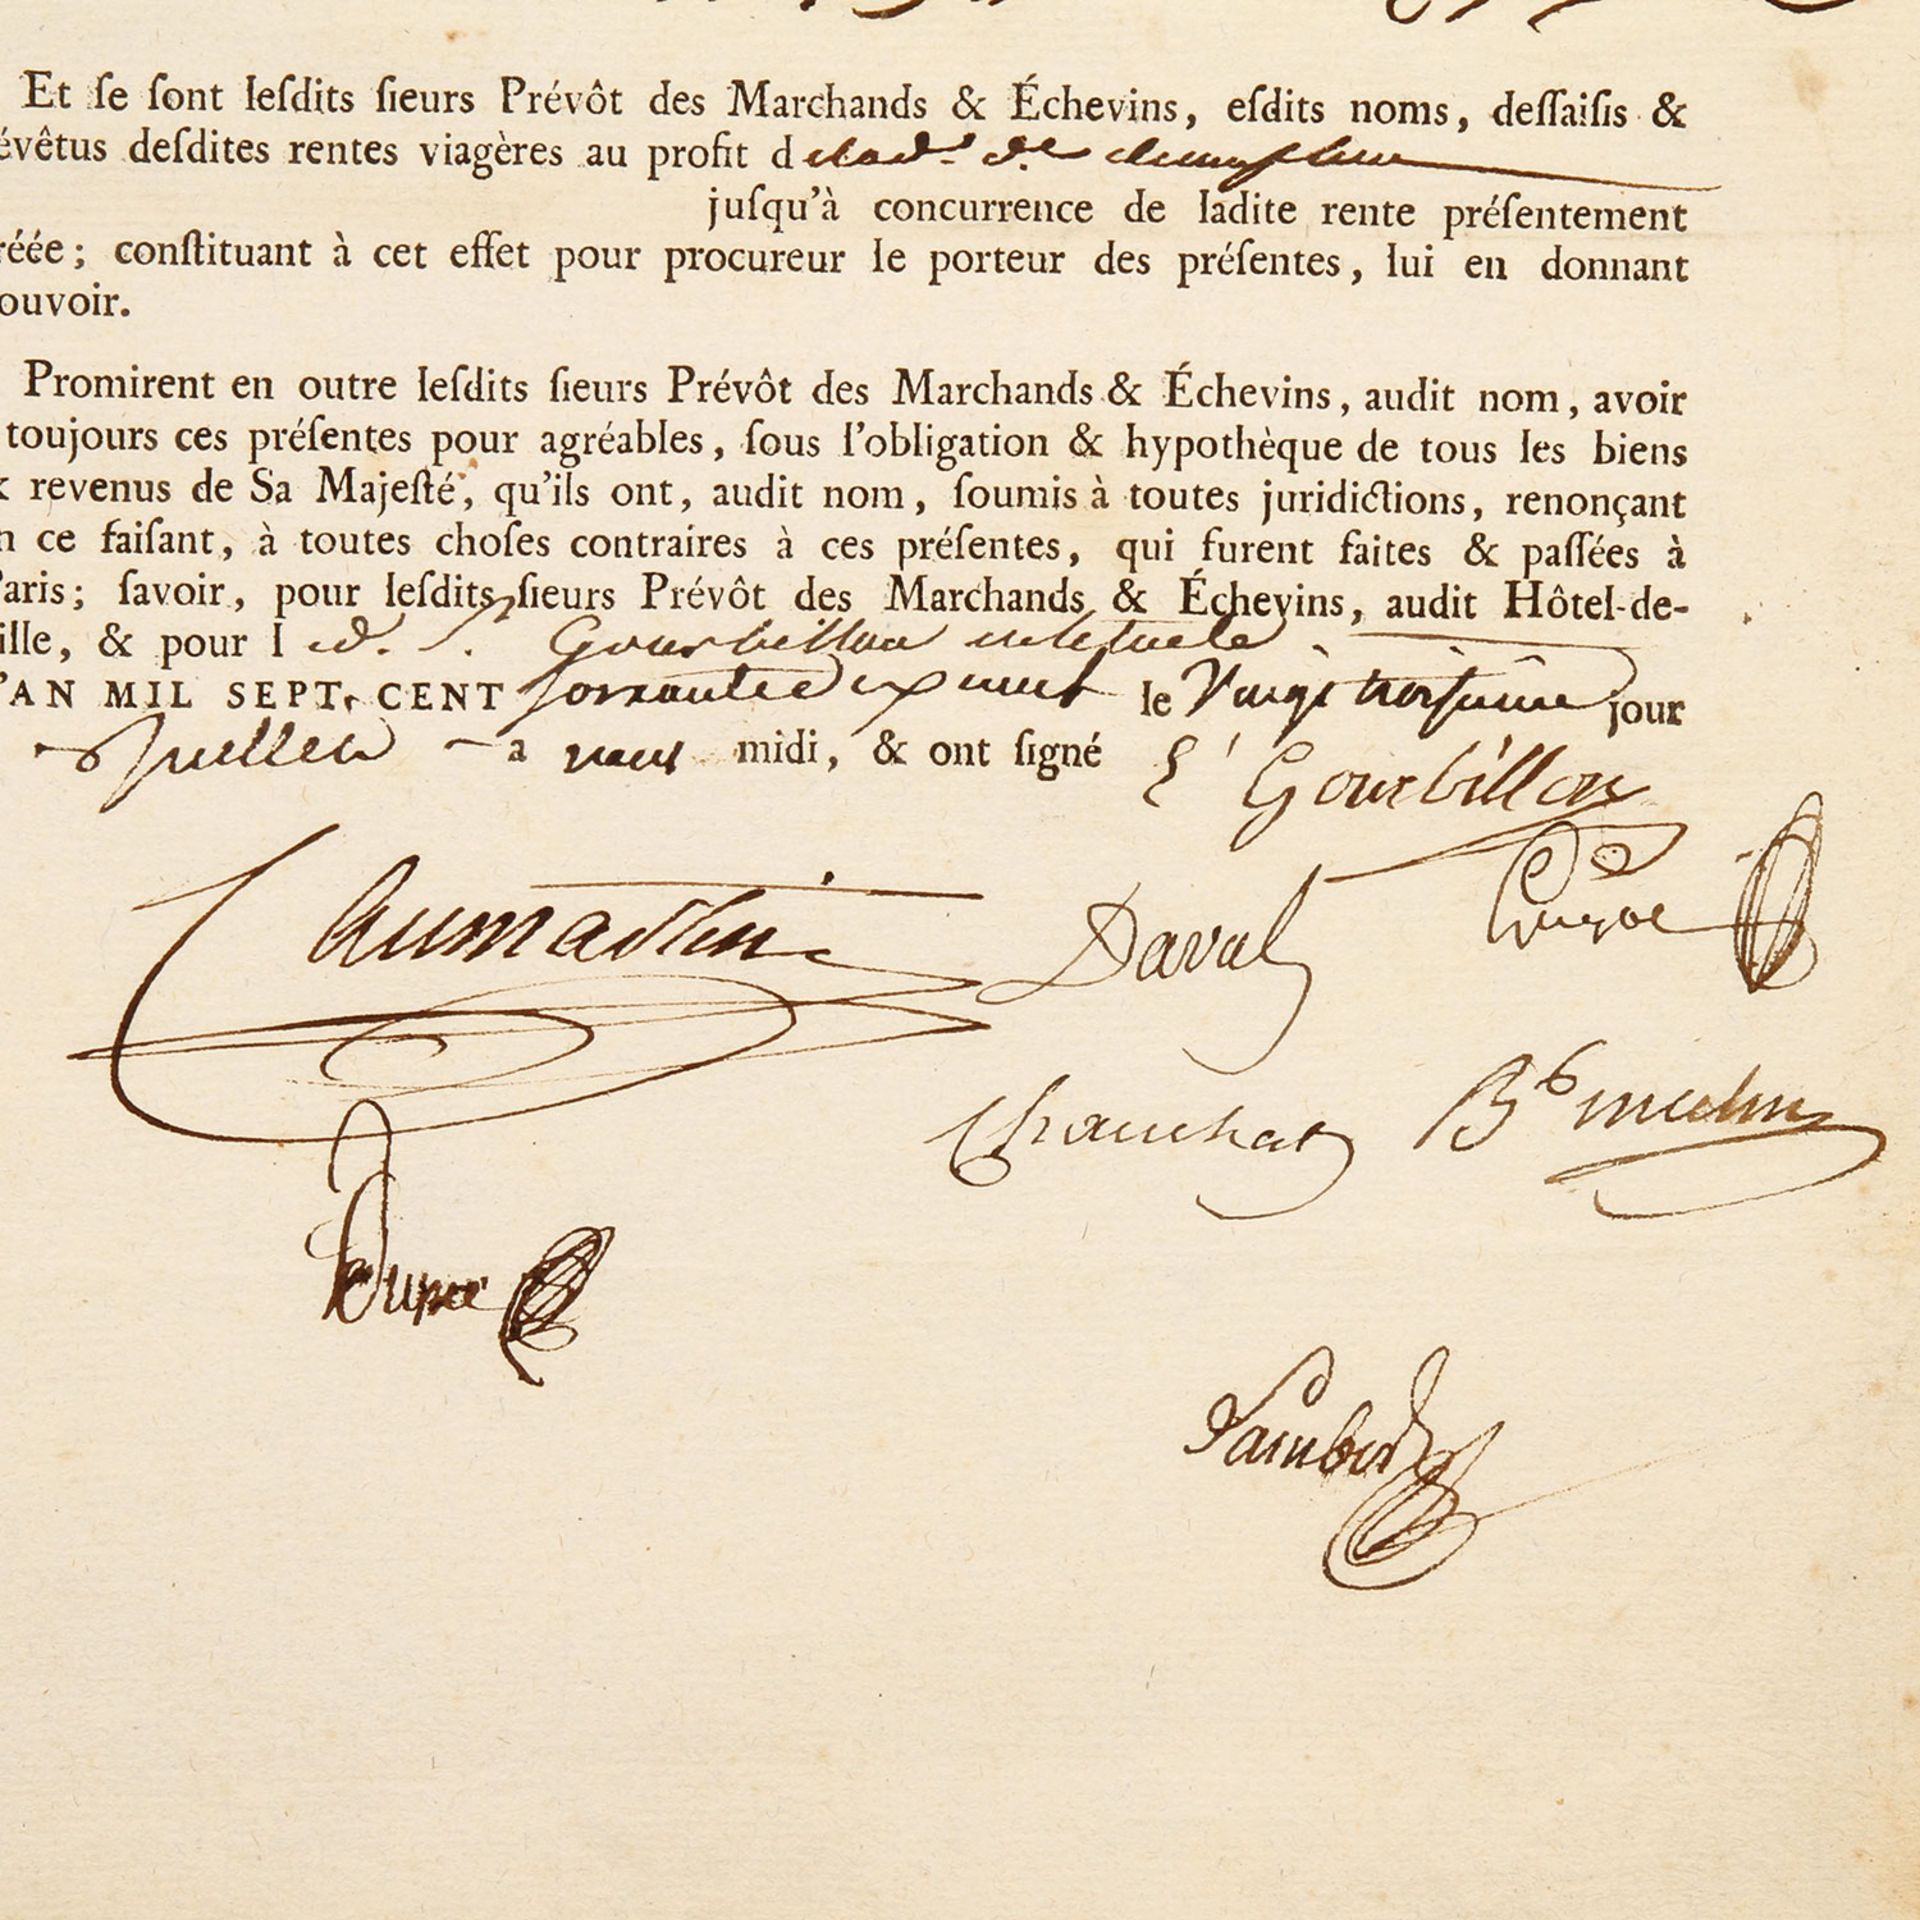 Et ſe ſont leſdits ſieurs Prévôt des Marchands & Échevins, eſdits noms, deſſaiſis &
évêtus deſdites rentes viagères au profit d
juſqu'à concurrence de ladite rente préſentement
réée; conſtituant à cet effet pour procureur le porteur des préſentes, lui en donnant
ouvoir.
Promirent en outre leſdits ſieurs Prévôt des Marchands & Échevins, audit nom, avoir
toujours ces préſentes pour agréables, ſous l'obligation & hypothèque de tous les biens
& revenus de Sa Majeſté, qu'ils ont, audit nom, ſoumis à toutes juridictions, renonçant
n ce faiſant, à toutes choſes contraires à ces préſentes, qui furent faites & paſſées à
Paris; ſavoir, pour leſdits ſieurs Prévôt des Marchands & Échevins, audit Hôtel-de-
ille, & pour l d. S. Gourbillon en l'étude
'AN MIL SEPT CENT soixante dix neuf le Vingt troisième jour
Juillet a vant midi, & ont ſigné Gourbillon
Caumartin Daval
Chauchat
Dupré
Lambot